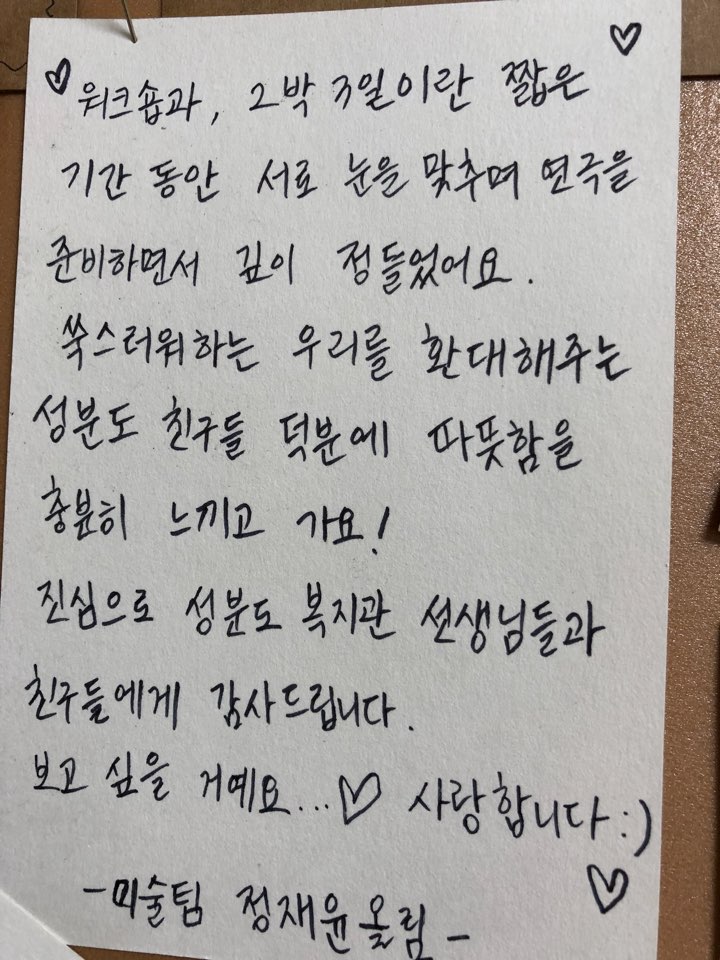 ♡ 워크숍과, 2박 3일이란 짧은 ♡
기간 동안 서로 눈을 맞추며 연극을
준비하면서 깊이 정들었어요.
쑥스러워하는 우리를 환대해주는
성분도 친구들 덕분에 따뜻함을
충분히 느끼고 가요!
진심으로 성분도 복지관 선생님들과
친구들에게 감사드립니다.
보고 싶을 거예요...♡ 사랑합니다:)
♡
-미술팀 정재윤 올림-